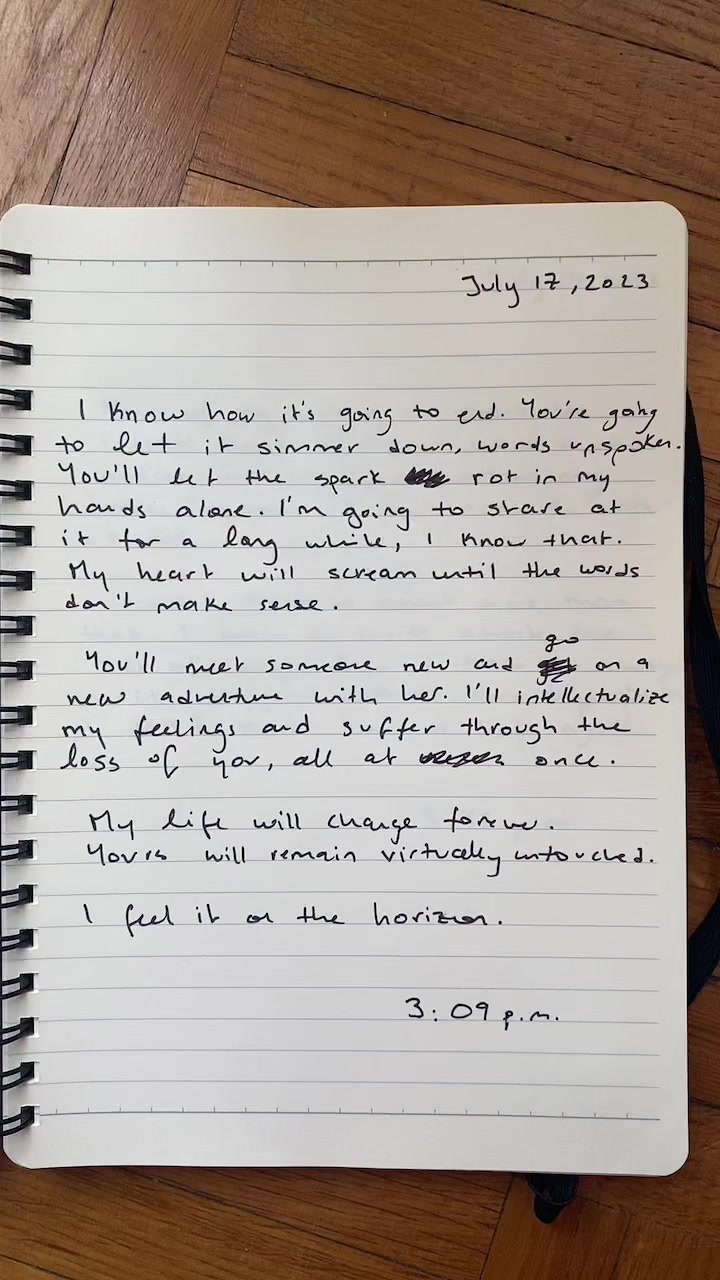 July 17, 2023
I know how it's going to end. You're going
to let it simmer down, words unspoken.
You'll let the spark rot in my
hands alone. I'm going to stare at
it for a long while, I know that.
My heart will scream until the words
don't make sense.
You'll meet someone new and go on a
new adventure with her. I'll intellectualize
my feelings and suffer through the
loss of you, all at once.
My life will change forever.
Yours will remain virtually untouched.
I feel it on the horizon.
3:09 p.m.